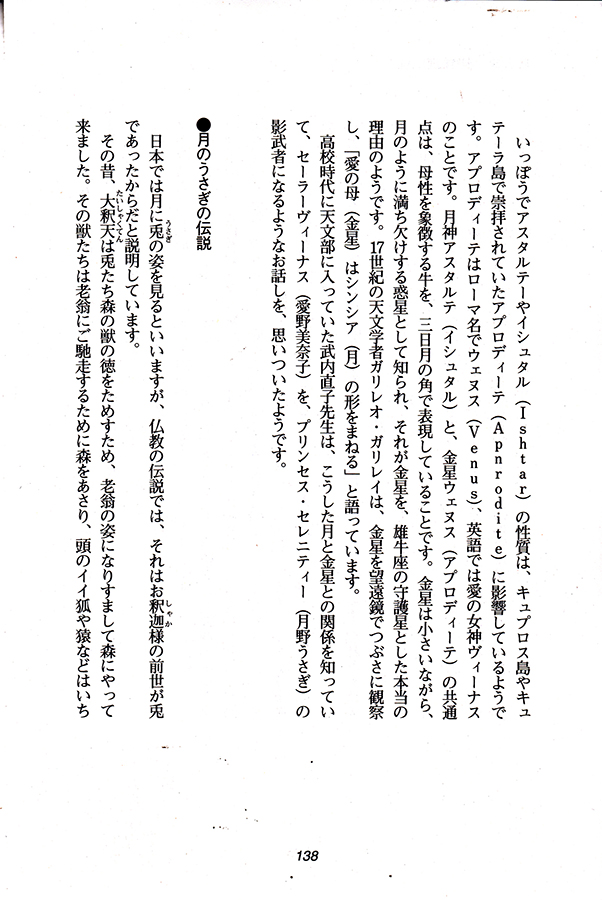 いっぽうでアスタルテーやイシュタル（Ishtar）の性質は、キュプロス島やキュ
テーラ島で崇拝されていたアプロディーテ（Apnrodite）に影響しているようで
す。アプロディーテはローマ名でウェヌス（Venus）、英語では愛の女神ヴィーナス
のことです。月神アスタルテ（イシュタル）と、金星ウェヌス（アプロディーテ）の共通
点は、母性を象徴する牛を、三日月の角で表現していることです。金星は小さいながら、
月のように満ち欠けする惑星として知られ、それが金星を、雄牛座の守護星とした本当の
理由のようです。17世紀の天文学者ガリレオ・ガリレイは、金星を望遠鏡でつぶさに観察
し、「愛の母（金星）はシンシア（月）の形をまねる」と語っています。
高校時代に天文部に入っていた武内直子先生は、こうした月と金星との関係を知ってい
て、セーラーヴィーナス（愛野美奈子）を、プリンセス・セレニティー（月野うさぎ）の
影武者になるようなお話しを、思いついたようです。
●月のうさぎの伝説
日本では月に兎の姿を見るといいますが、仏教の伝説では、それはお釈迦様の前世が兎
うさぎ
しゃか
であったからだと説明しています。
その昔、大釈天は兎たち森の獣の徳をためすため、老翁の姿になりすまして森にやって
たいしゃくてん
来ました。その獣たちは老翁にご馳走するために森をあさり、頭のイイ狐や猿などはいち
138